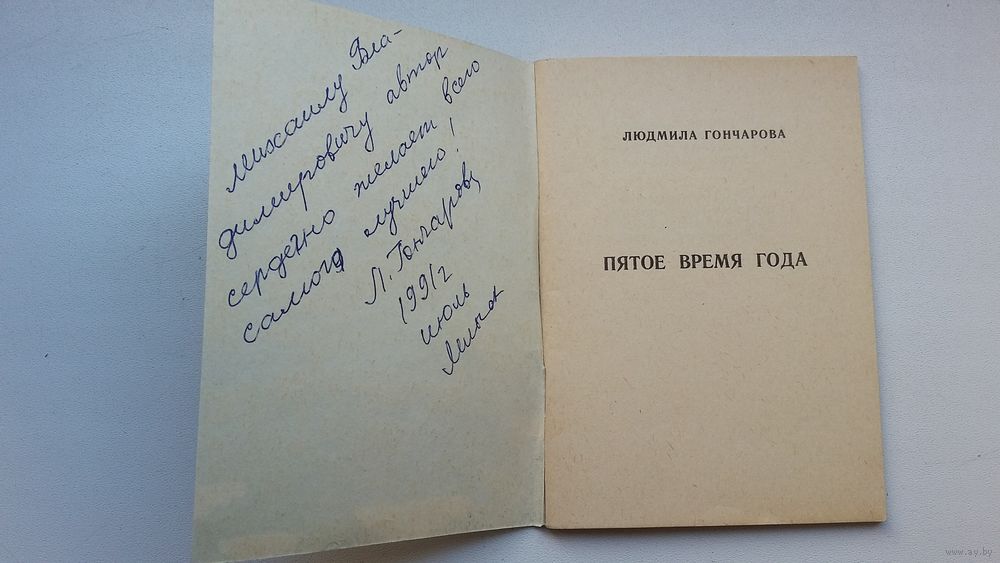 Михаилу Вла-
димировичу автор
сердечно желает всего
самого лучшего!
Л. Гончарова
1991г
июль
ЛЮДМИЛА ГОНЧАРОВА
ПЯТОЕ ВРЕМЯ ГОДА
www.ay.by